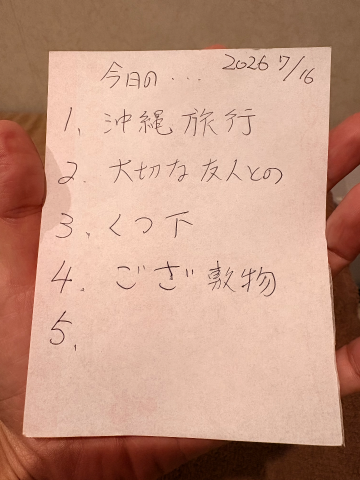 2026 7/16
今日の...
1. 沖縄旅行
2. 大切な友人との
3. くつ下
4. ござ敷物
5.